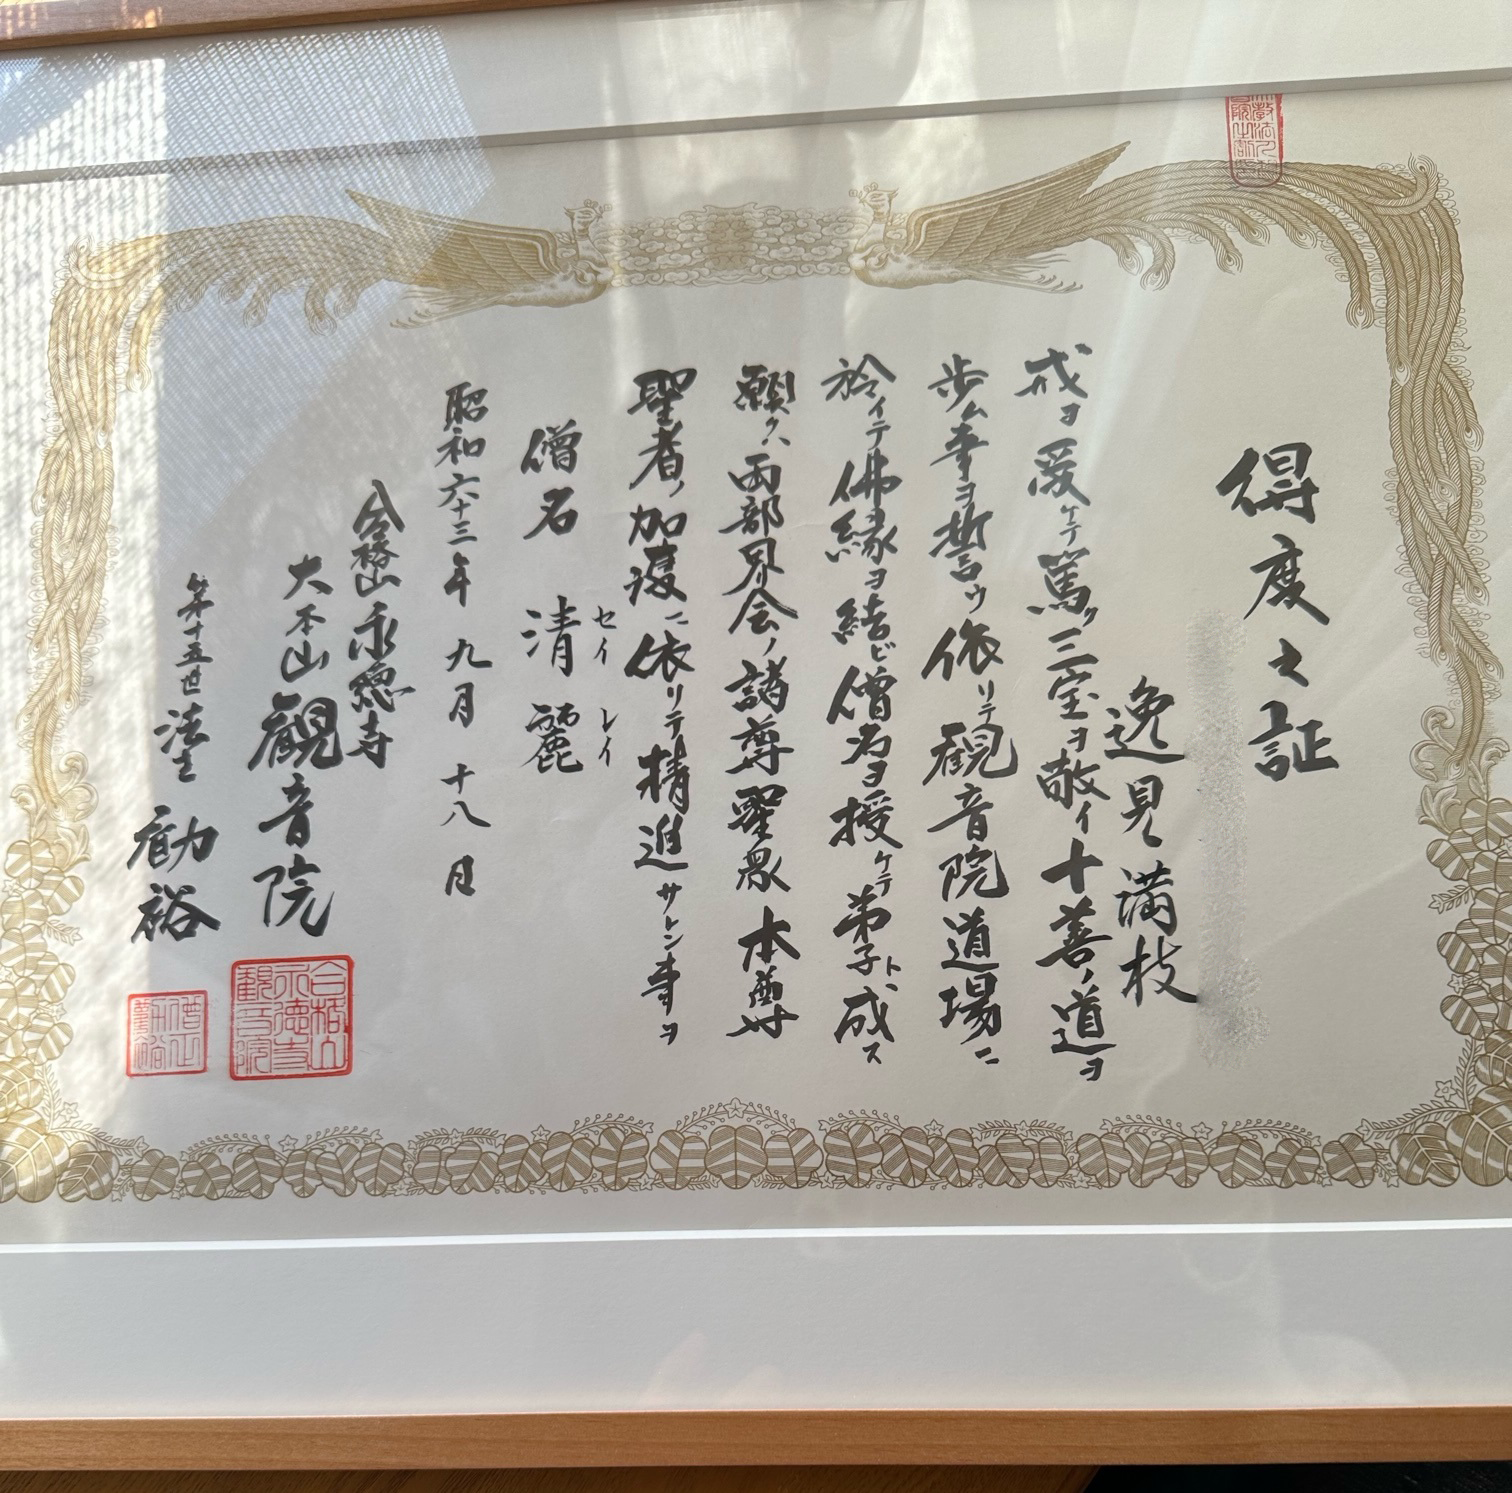 得度之証
逸見満枝
戒ヲ受ケテ篤ク三宝ヲ敬イ十善ノ道ヲ
歩ム事ヲ誓ウ依リテ観音院道場ニ
於イテ佛縁ヲ結ビ僧名ヲ授ケテ弟子ト成ス
願クハ両部界会ノ諸尊聖衆本尊
聖者ノ加護ニ依リテ精進サレン事ヲ
僧名 清麗
セイ レイ
昭和六十三年九月十八日
永徳寺
大本山観音院
第十五世 法主
裕